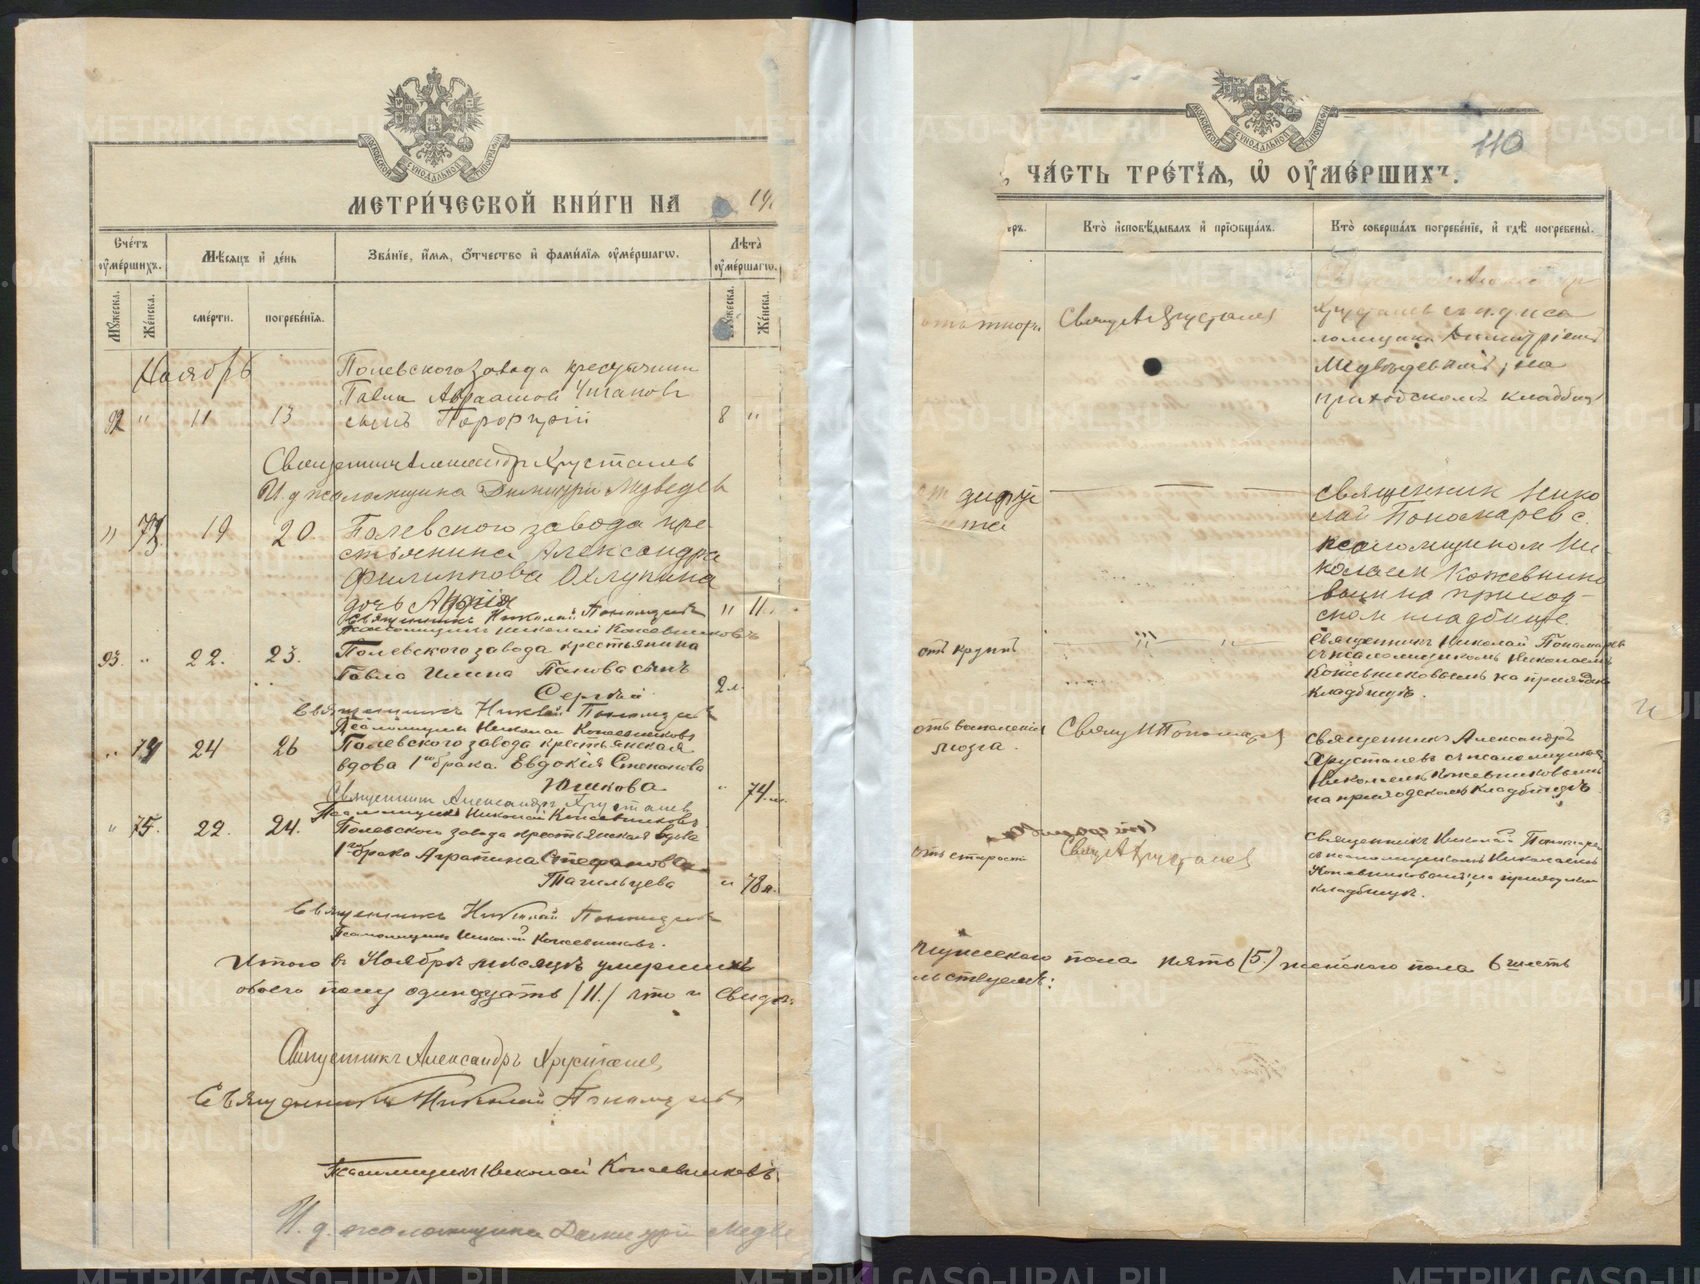 МЕТРИ́ЧЕСКОЙ КНИ́ГИ НА 19
Сче́тъ ᲂу҆ме́ршихъ.
Мѣ́сяцъ и҆ де́нь
Зва́нїе, и҆́мя, ѻ҆́тчество и҆ фами́лїя ᲂу҆ме́ршагѡ.
Лѣ́та ᲂу҆ме́ршагѡ.
Мꙋ́жеска.
Же́нска.
сме́рти.
погребе́нїя.
Мꙋ́жеска.
Же́нска.
Ноябрь
Полевского завода крестьянина
Павла Авраамова
92 " 11 13 сынъ Порфирій 8 "
Священникъ Александръ Хрусталевъ
И. д. псаломщика Димитрій Медведев
" 73 19 20. Полевского завода кре-
стьянина Александра
Филиппова Охлупина
дочь " 11
Священникъ Николай Пономаревъ
Псаломщикъ Николай Кожевниковъ
93. " 22. 23. Полевского завода крестьянина
Павла Ильина Попова сынъ
Сергѣй 2 л.
Священникъ Николай Пономаревъ
Псаломщикъ Николай Кожевниковъ
" 74 24 26 Полевского завода крестьянская
вдова 1го брака Евдокія Степанова
Юшкова " 74
Священникъ Александръ Хрусталев
Псаломщикъ Николай Кожевниковъ
" 75. 22. 24. Полевского завода крестьянская вдова
1го брака Агрипина Стефанова
Тагильцева " 78 л.
Священникъ Николай Пономаревъ
Псаломщикъ Николай Кожевниковъ.
Итого въ Ноябрѣ мѣсяцѣ умершихъ
обоего полу одинадцать (11.) что и свидѣ-
Священникъ Александръ Хрусталев
Священникъ Николай Пономаревъ
Псаломщикъ Николай Кожевниковъ
И. д. псаломщика Димитрій Медве
110
ЧА́СТЬ ТРЕ́ТЇЯ, Ѡ҆ ОУ҆МЕ́РШИХЪ.
Кто̀ и҆сповѣ́дывалъ и҆ прїѡбща́лъ.
Кто̀ соверша́лъ погребе́нїе, и҆ гдѣ̀ погребены̀.
Священ. А. Хрусталев
Хрусталевъ съ и. д. пса
ломщика Димитріемъ
Медвѣдевымъ, на
приходскомъ кладбищѣ
священник Нико
лай Пономарев с
псаломщиком Ни-
колаем Кожевнико
вым на приход-
ском кладбище.
отъ крупъ
Священникъ Николай Пономаревъ
съ псаломщикомъ Николаемъ
Кожевниковымъ на приходско
кладбищѣ.
отъ воспаленія Священ Н Пономарев
мозга.
Священникъ Александръ
Хрусталевъ съ псаломщикомъ
Николаемъ Кожевниковымъ
на приходскомъ кладбищѣ.
отъ старости Свящ А Хрусталев
Священникъ Николай Пономарев
съ псаломщикомъ Николаемъ
Кожевниковымъ, на приходском
кладбищѣ.
мужескаго пола пять (5.) женскаго пола 6 шесть
льствуемъ: